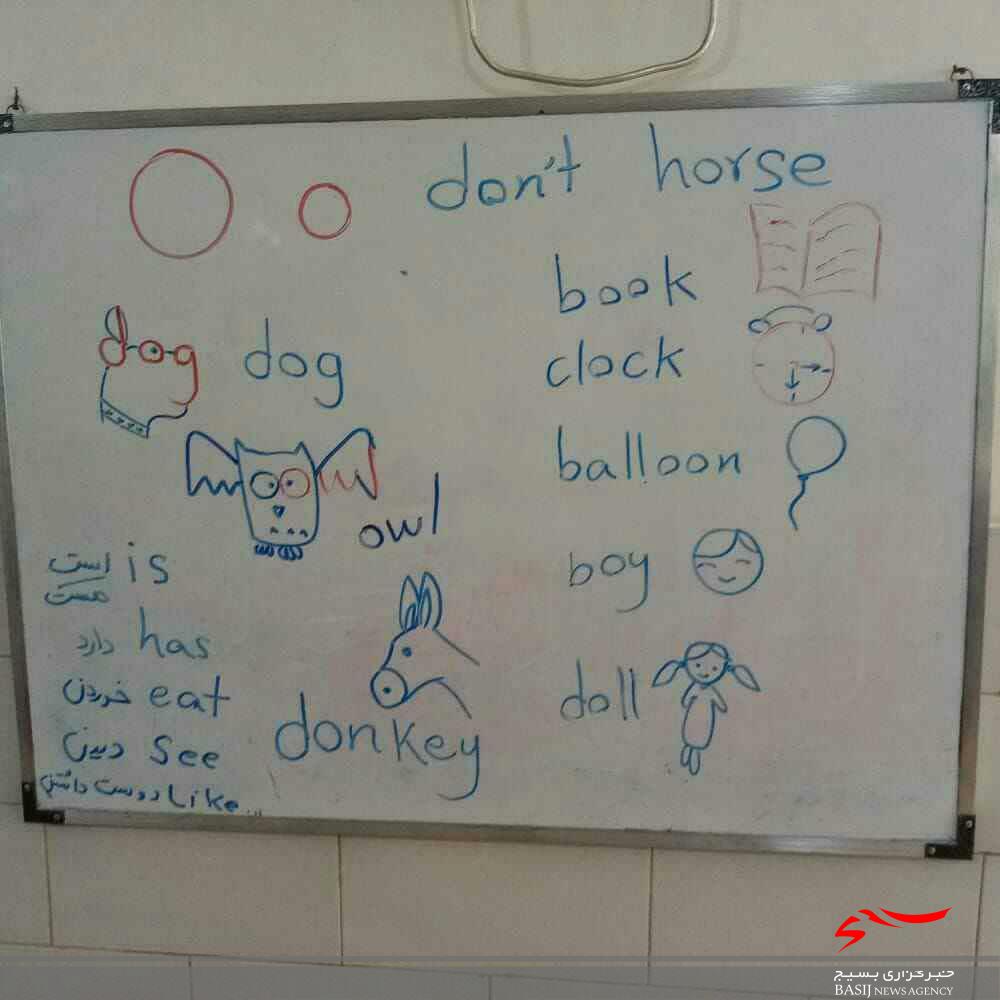 don't horse
book
clock
dog dog
balloon
owl
boy
است is
هست
دارد has
خوردن eat
دیدن see
دوست داشتن Like
donkey
doll
خبرگزاری بسیج
BASIJ NEWS AGENCY